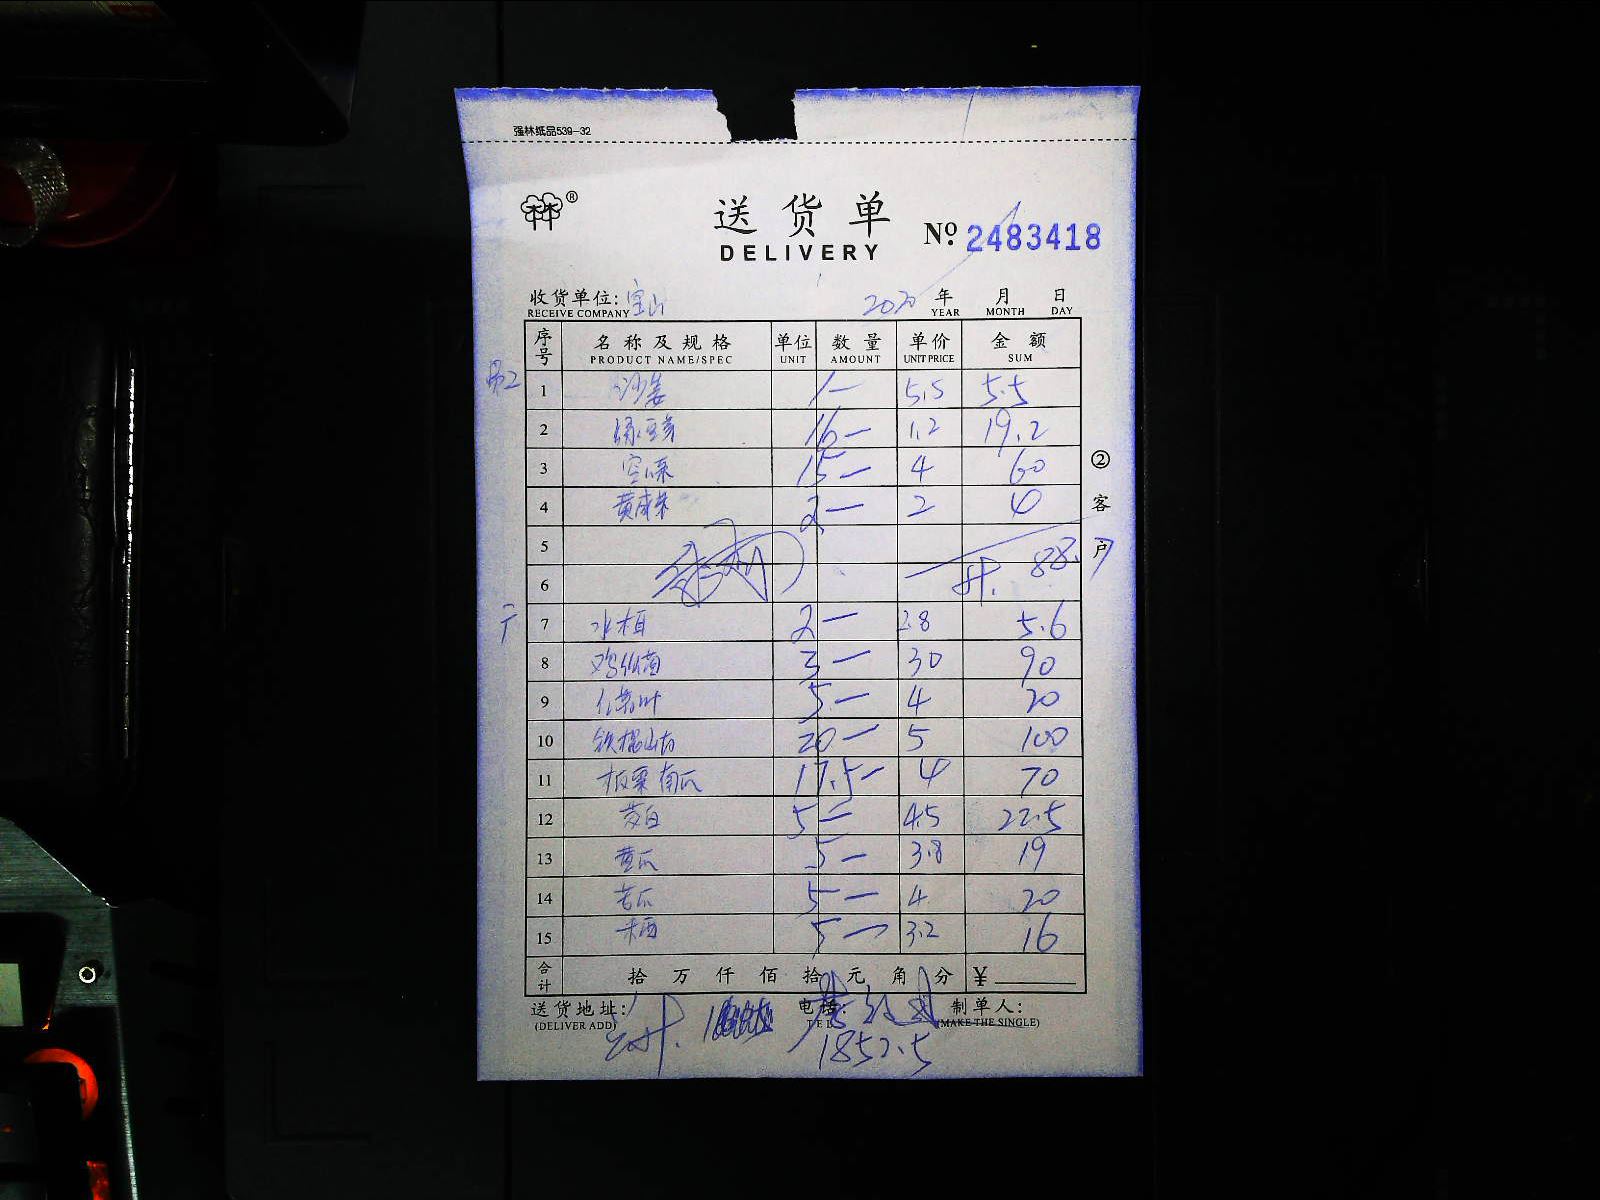 强林纸品539-32
林®
送货单
DELIVERY
№ 2483418
收货单位: 宝山 2020 年 月 日
RECEIVE COMPANY YEAR MONTH DAY
序号 名称及规格 单位 数量 单价 金额
PRODUCT NAME/SPEC UNIT AMOUNT UNIT PRICE SUM
1 沙姜 1— 5.5 5.5
2 绿豆芽 16— 1.2 19.2
3 空心菜 15— 4 60
4 黄咸菜 2— 2 4
5
6 计. 88.7
7 水柏 2— 2.8 5.6
8 鸡枞菌 3— 30 90
9 5— 4 20
10 铁棍山药 20— 5 100
11 板栗南瓜 17.5— 4 70
12 茭白 5— 4.5 22.5
13 黄瓜 5— 3.8 19
14 苦瓜 5— 4 20
15 5— 3.2 16
合计 拾 万 仟 佰 拾 元 角 分 ¥
送货地址: 电话: 制单人:
(DELIVER ADD) TEL (MAKE THE SINGLE)
1852.5
②客户